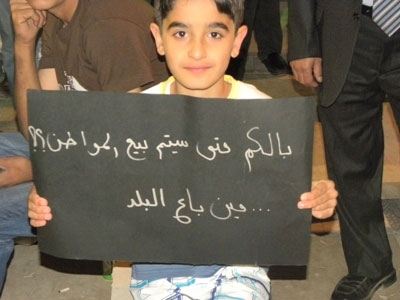 بالكم متى سيتم بيع المواطن؟؟
...مين باع البلد